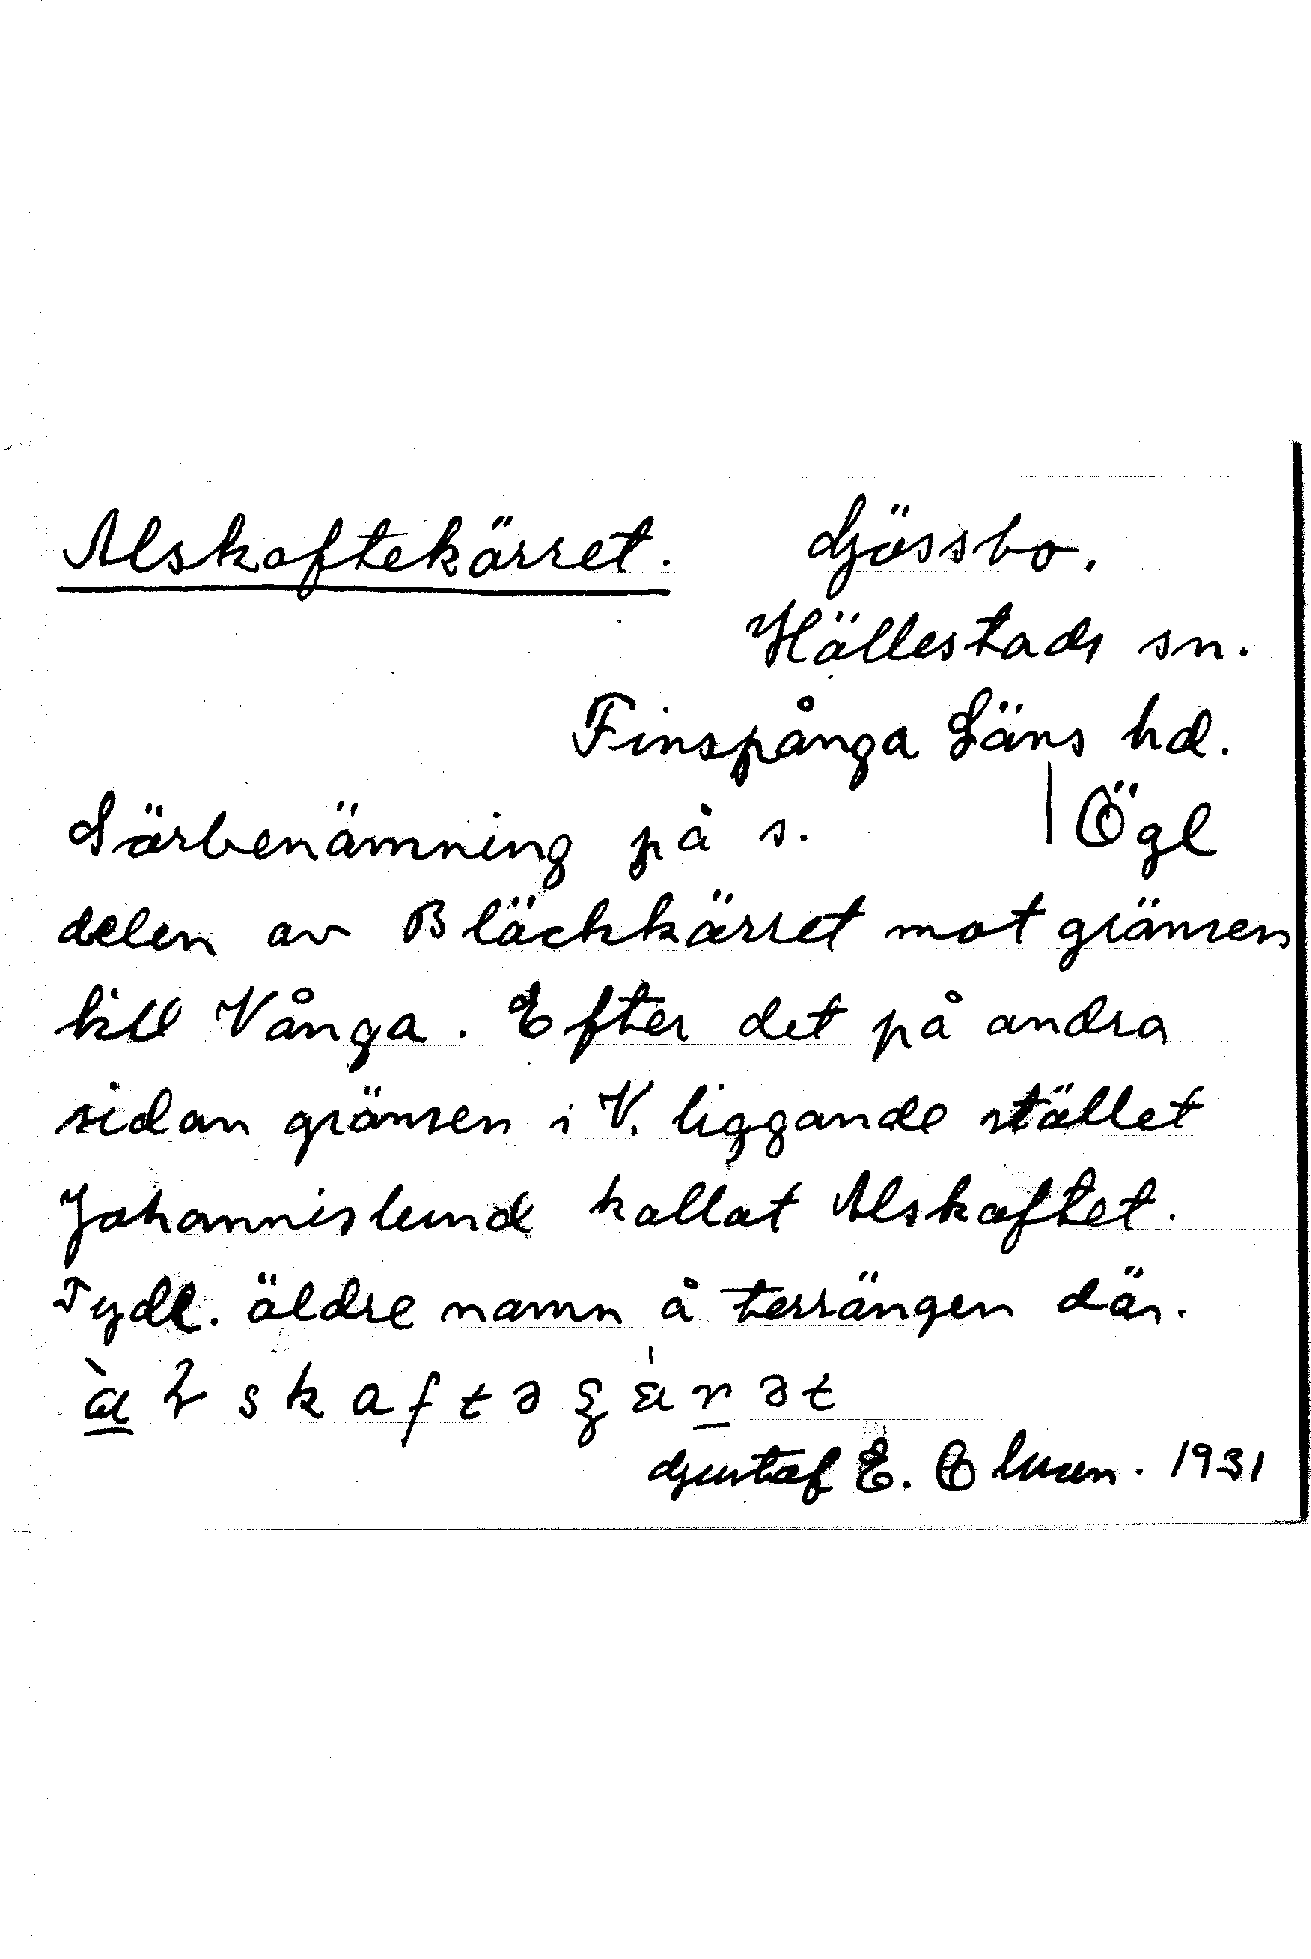 Alskaftekärret. Gössbo.
Hällestads sn.
Finspånga Läns hd.
Särbenämning på s. | Ögl
delen av Bläckkärret mot gränsen
till Vånga. Efter det på andra
sidan gränsen i V. liggande stället
Johannislund kallat Alskaftet.
Tydl. äldre namn å terrängen där.
Gustaf E. Olsson. 1931